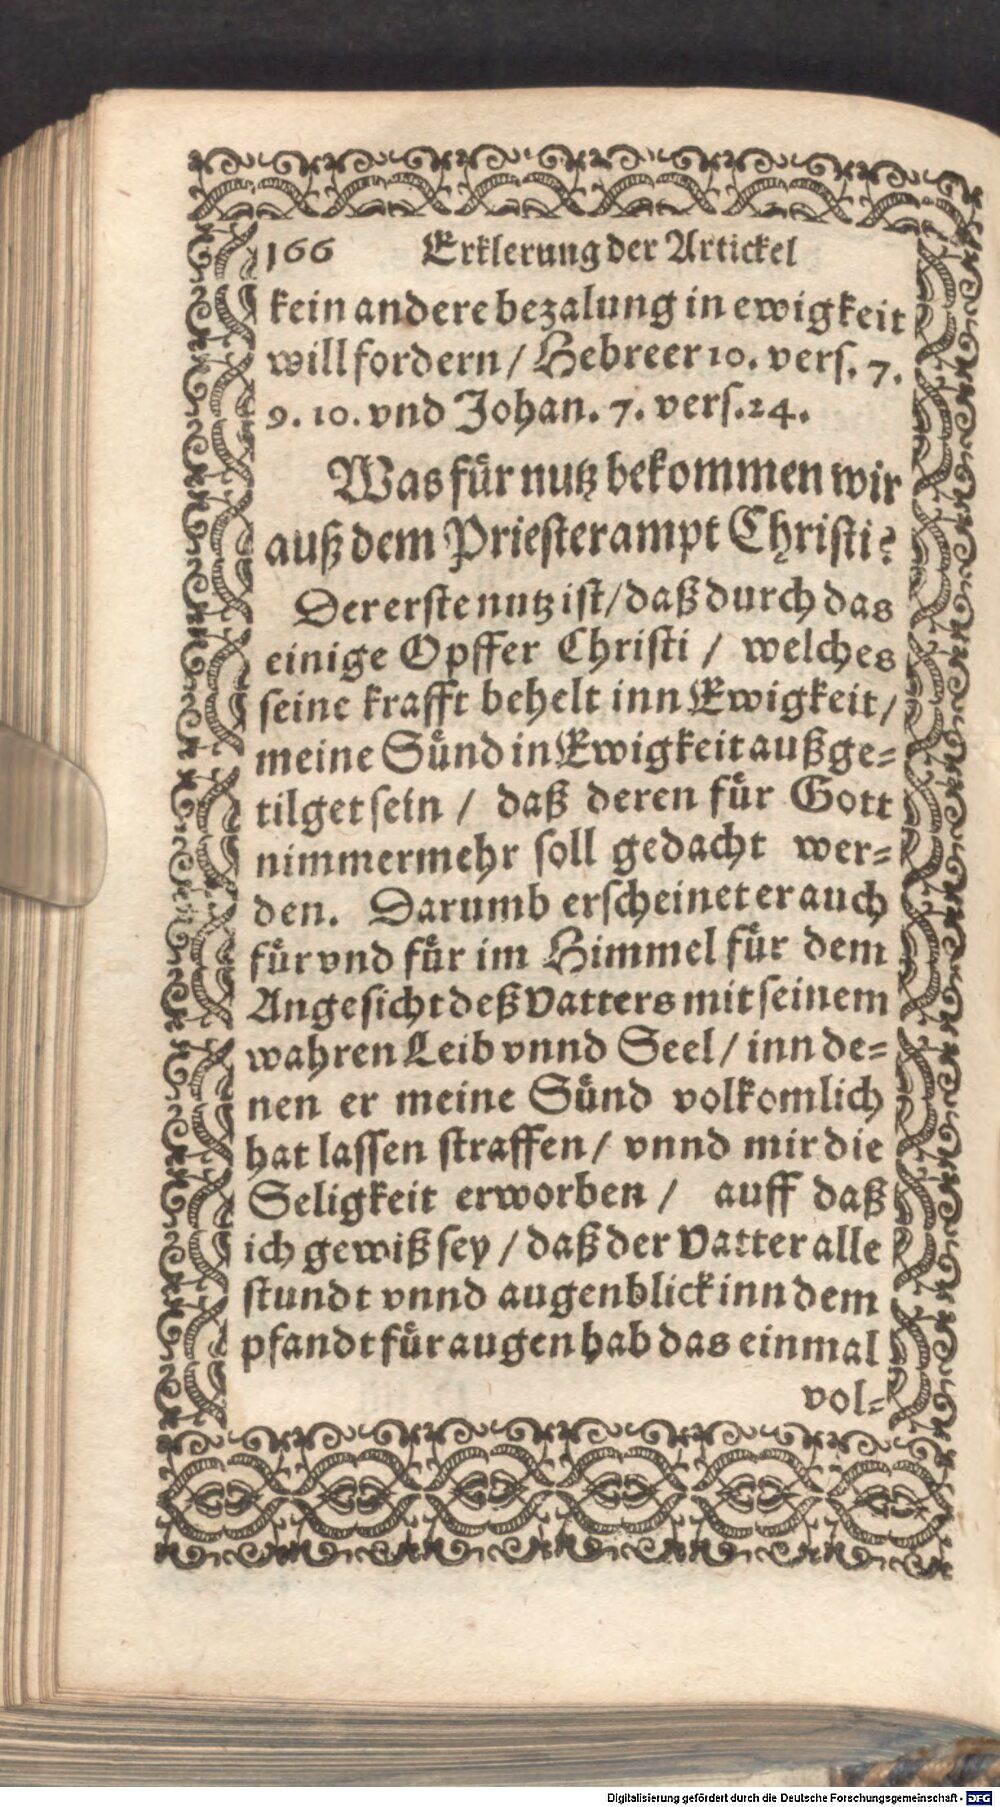 166 Erklerung der Artickel
kein andere bezalung in ewigkeit
will fordern / Hebreer 10. vers. 7.
9. 10. vnd Johan. 7. vers. 24.
Was fuͤr nutz bekommen wir
auß dem Priesterampt Christi?
Der erste nutz ist / daß durch das
einige Opffer Christi / welches
seine krafft behelt inn Ewigkeit /
meine Suͤnd in Ewigkeit außge=
tilget sein / daß deren fuͤr Gott
nimmermehr soll gedacht wer=
den. Darumb erscheinet er auch
fuͤr vnd fuͤr im Himmel fuͤr dem
Angesicht deß Vatters mit seinem
wahren Leib vnnd Seel / inn de=
nen er meine Suͤnd volkomlich
hat lassen straffen / vnnd mir die
Seligkeit erworben / auff daß
ich gewiß sey / daß der Vatter alle
stundt vnnd augenblick inn dem
pfandt fuͤr augen hab das einmal
vol=
Digitalisierung gefördert durch die Deutsche Forschungsgemeinschaft - DFG